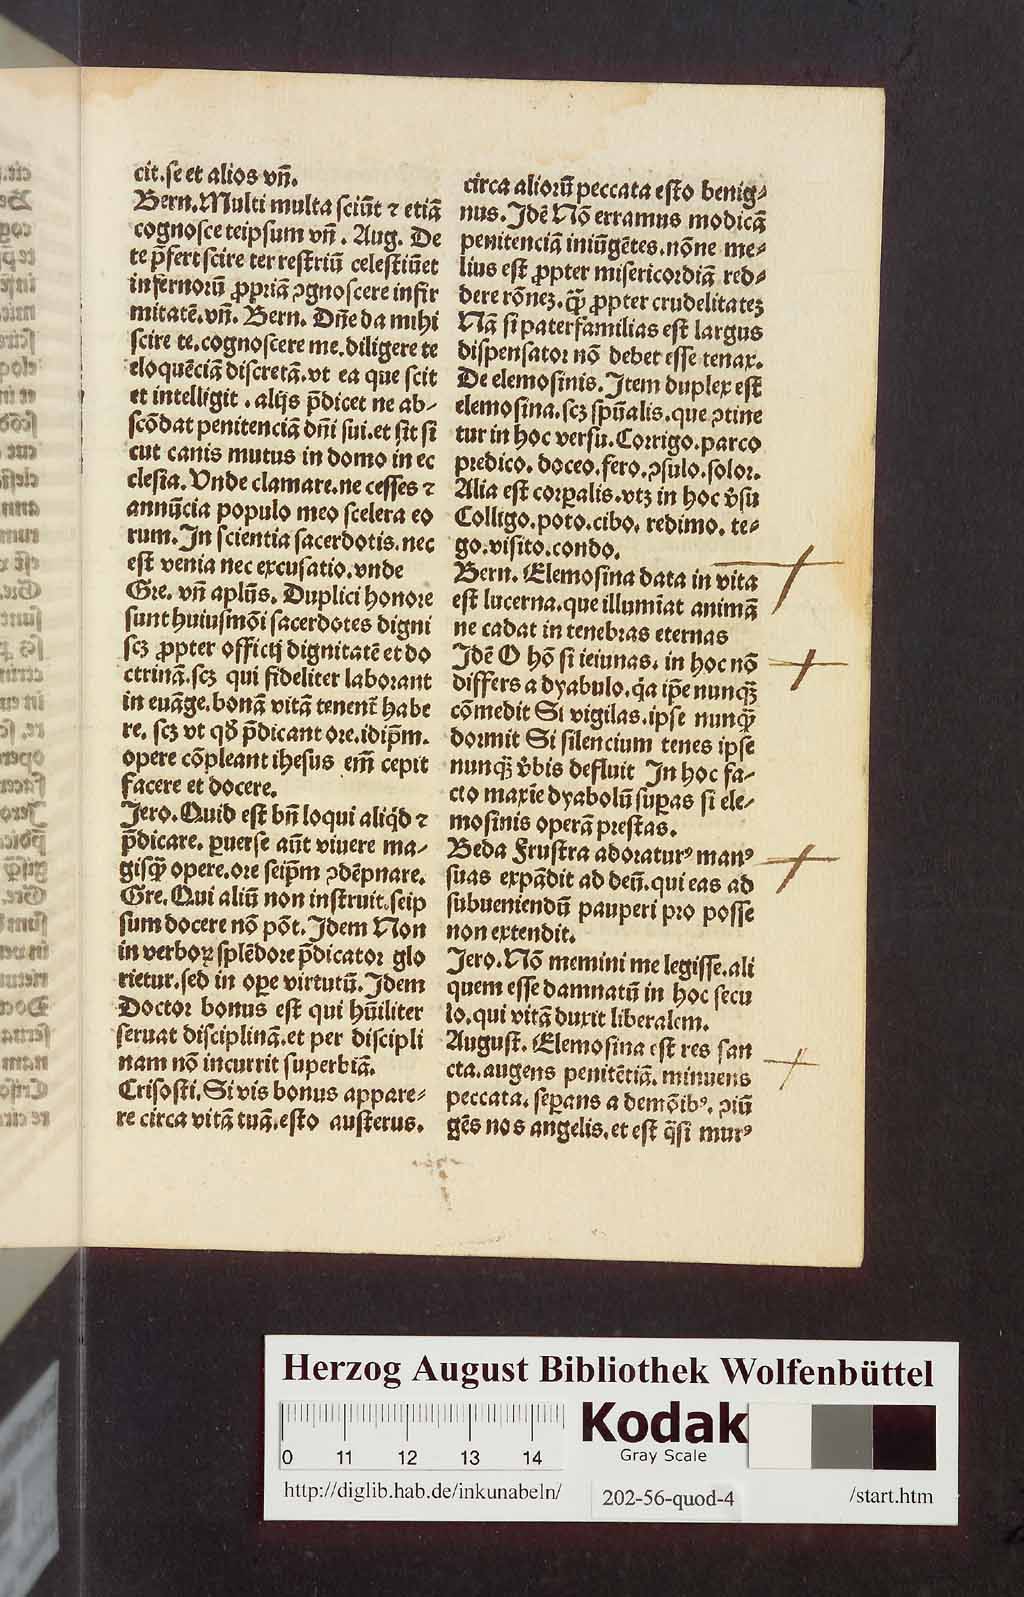 cit.se et alios vn̄.
Bern.Multi multa sciūt ⁊ etiā
cognosce teipsum vn̄. Aug. De
te p̄fert scire terrestriū celestiūet
infernorū ꝓpriā ꝯgnoscere infir
mitatē.vn̄. Bern. Dn̄e da mihi
scire te.cognoscere me.diligere te
eloquēciā discretā.vt ea que scit
et intelligit . alijs p̄dicet ne ab⸗
scōdat penitenciā dn̄i sui.et sit si
cut canis mutus in domo in ec
clesia. Vnde clamare.ne cesses ⁊
annūcia populo meo scelera eo
rum. In scientia sacerdotis. nec
est venia nec excusatio.vnde
Gre. vn̄ aplūs. Duplici honore
sunt huiusmōi sacerdotes digni
scꝫ ꝓpter officij dignitatē et do
ctrinā.scꝫ qui fideliter laborant
in euāge.bonā vitā tenent̄ habe
re. scꝫ vt qd̄ p̄dicant ore.idip̄m.
opere cōpleant ihesus em̄ cepit
facere et docere.
Jero.Quid est bn̄ loqui aliq̇d ⁊
p̄dicare. ꝑuerse aūt viuere ma⸗
gisqꝫ̄ opere.ore seip̄m ꝯdēpnare.
Gre. Qui aliū non instruit.seip
sum docere nō pōt. Idem Non
in verboꝝ splēdore p̄dicator glo
rietur.sed in oꝑe virtutū. Idem
Doctor bonus est qui hūiliter
seruat disciplinā.et per discipli
nam nō incurrit superbiā.
Crisosti. Si vis bonus appare⸗
re circa vitā tuā.esto austerus.
circa aliorū peccata esto benig⸗
nus. Idē Nō erramus modicā
penitenciā iniūgētes.nōne me⸗
lius est ꝓpter misericordiā red⸗
dere rōneꝫ.qꝫ̄ ꝓpter crudelitateꝫ
Nā si paterfamilias est largus
dispensator nō debet esse tenax.
De elemosinis. Item duplex est
elemosina.scꝫ spūalis.que ꝯtine
tur in hoc versu. Corrigo.parco
predico. doceo.fero.ꝯsulo.solor.
Alia est corꝑalis.vtꝫ in hoc v̄su
Colligo.poto.cibo. redimo. te⸗
go.visito.condo.
Bern. Elemosina data in vita
est lucerna.que illumīat animā
ne cadat in tenebras eternas
Idē O hō si ieiunas. in hoc nō
differs a dyabulo.q̇a ip̄e nunqꝫ̄
cōmedit Si vigilas.ipse nunqꝫ̄
dormit Si silencium tenes ipse
nunqꝫ̄ v̄bis defluit In hoc fa⸗
cto maxīe dyabolū suꝑas si ele⸗
mosinis operā prestas.
Beda Frustra adoraturꝰ manꝰ
suas expādit ad deū.qui eas ad
subueniendū pauperi pro posse
non extendit.
Jero. Nō memini me legisse.ali
quem esse damnatū in hoc secu
lo.qui vitā duxit liberalem.
August. Elemosina est res san
cta.augens penitētiā. minuens
peccata. seꝑans a demōibꝰ. ꝯiū
gēs nos angelis.et est q̄si murꝰ
Herzog August Bibliothek Wolfenbüttel
0 11 12 13 14
Kodak
Gray Scale
http://diglib.hab.de/inkunabeln/
202-56-quod-4
/start.htm